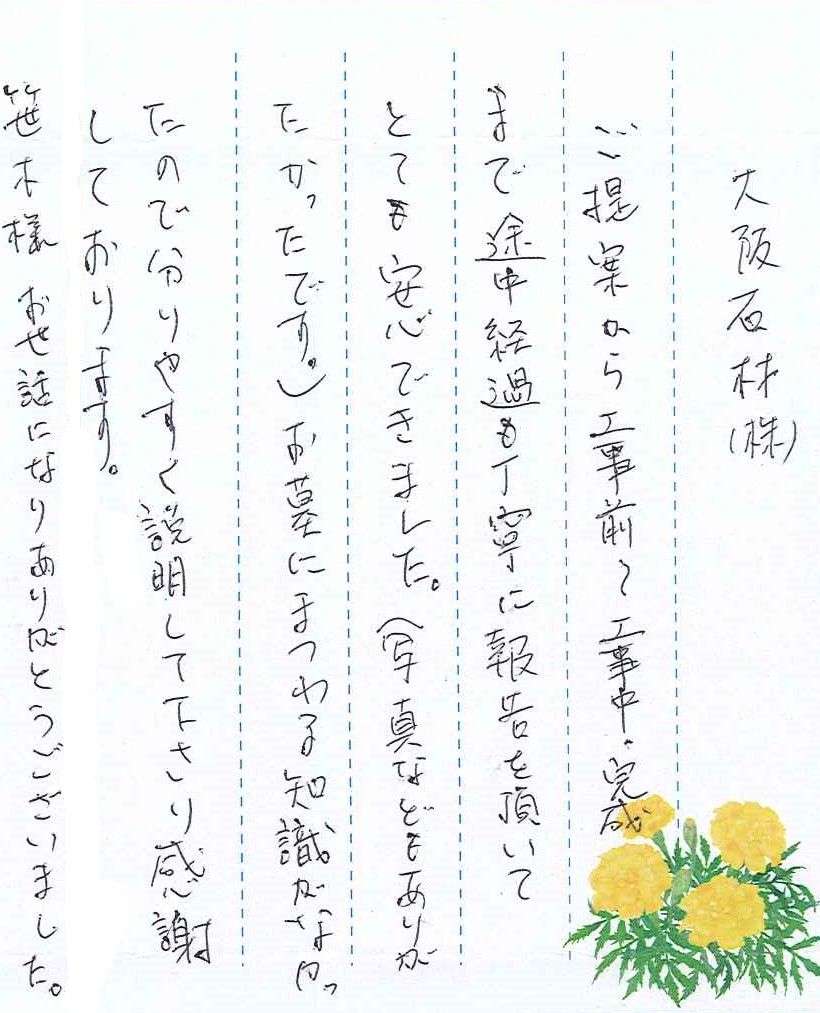 大阪石材(株)
ご提案から工事前〜工事中・完成
まで途中経過も丁寧に報告を頂いて
とても安心できました。(写真などもありが
たかったです。)お墓にまつわる知識がなかっ
たので分りやすく説明して下さり感謝
しております。
笹木様 お世話になりありがとうございました。